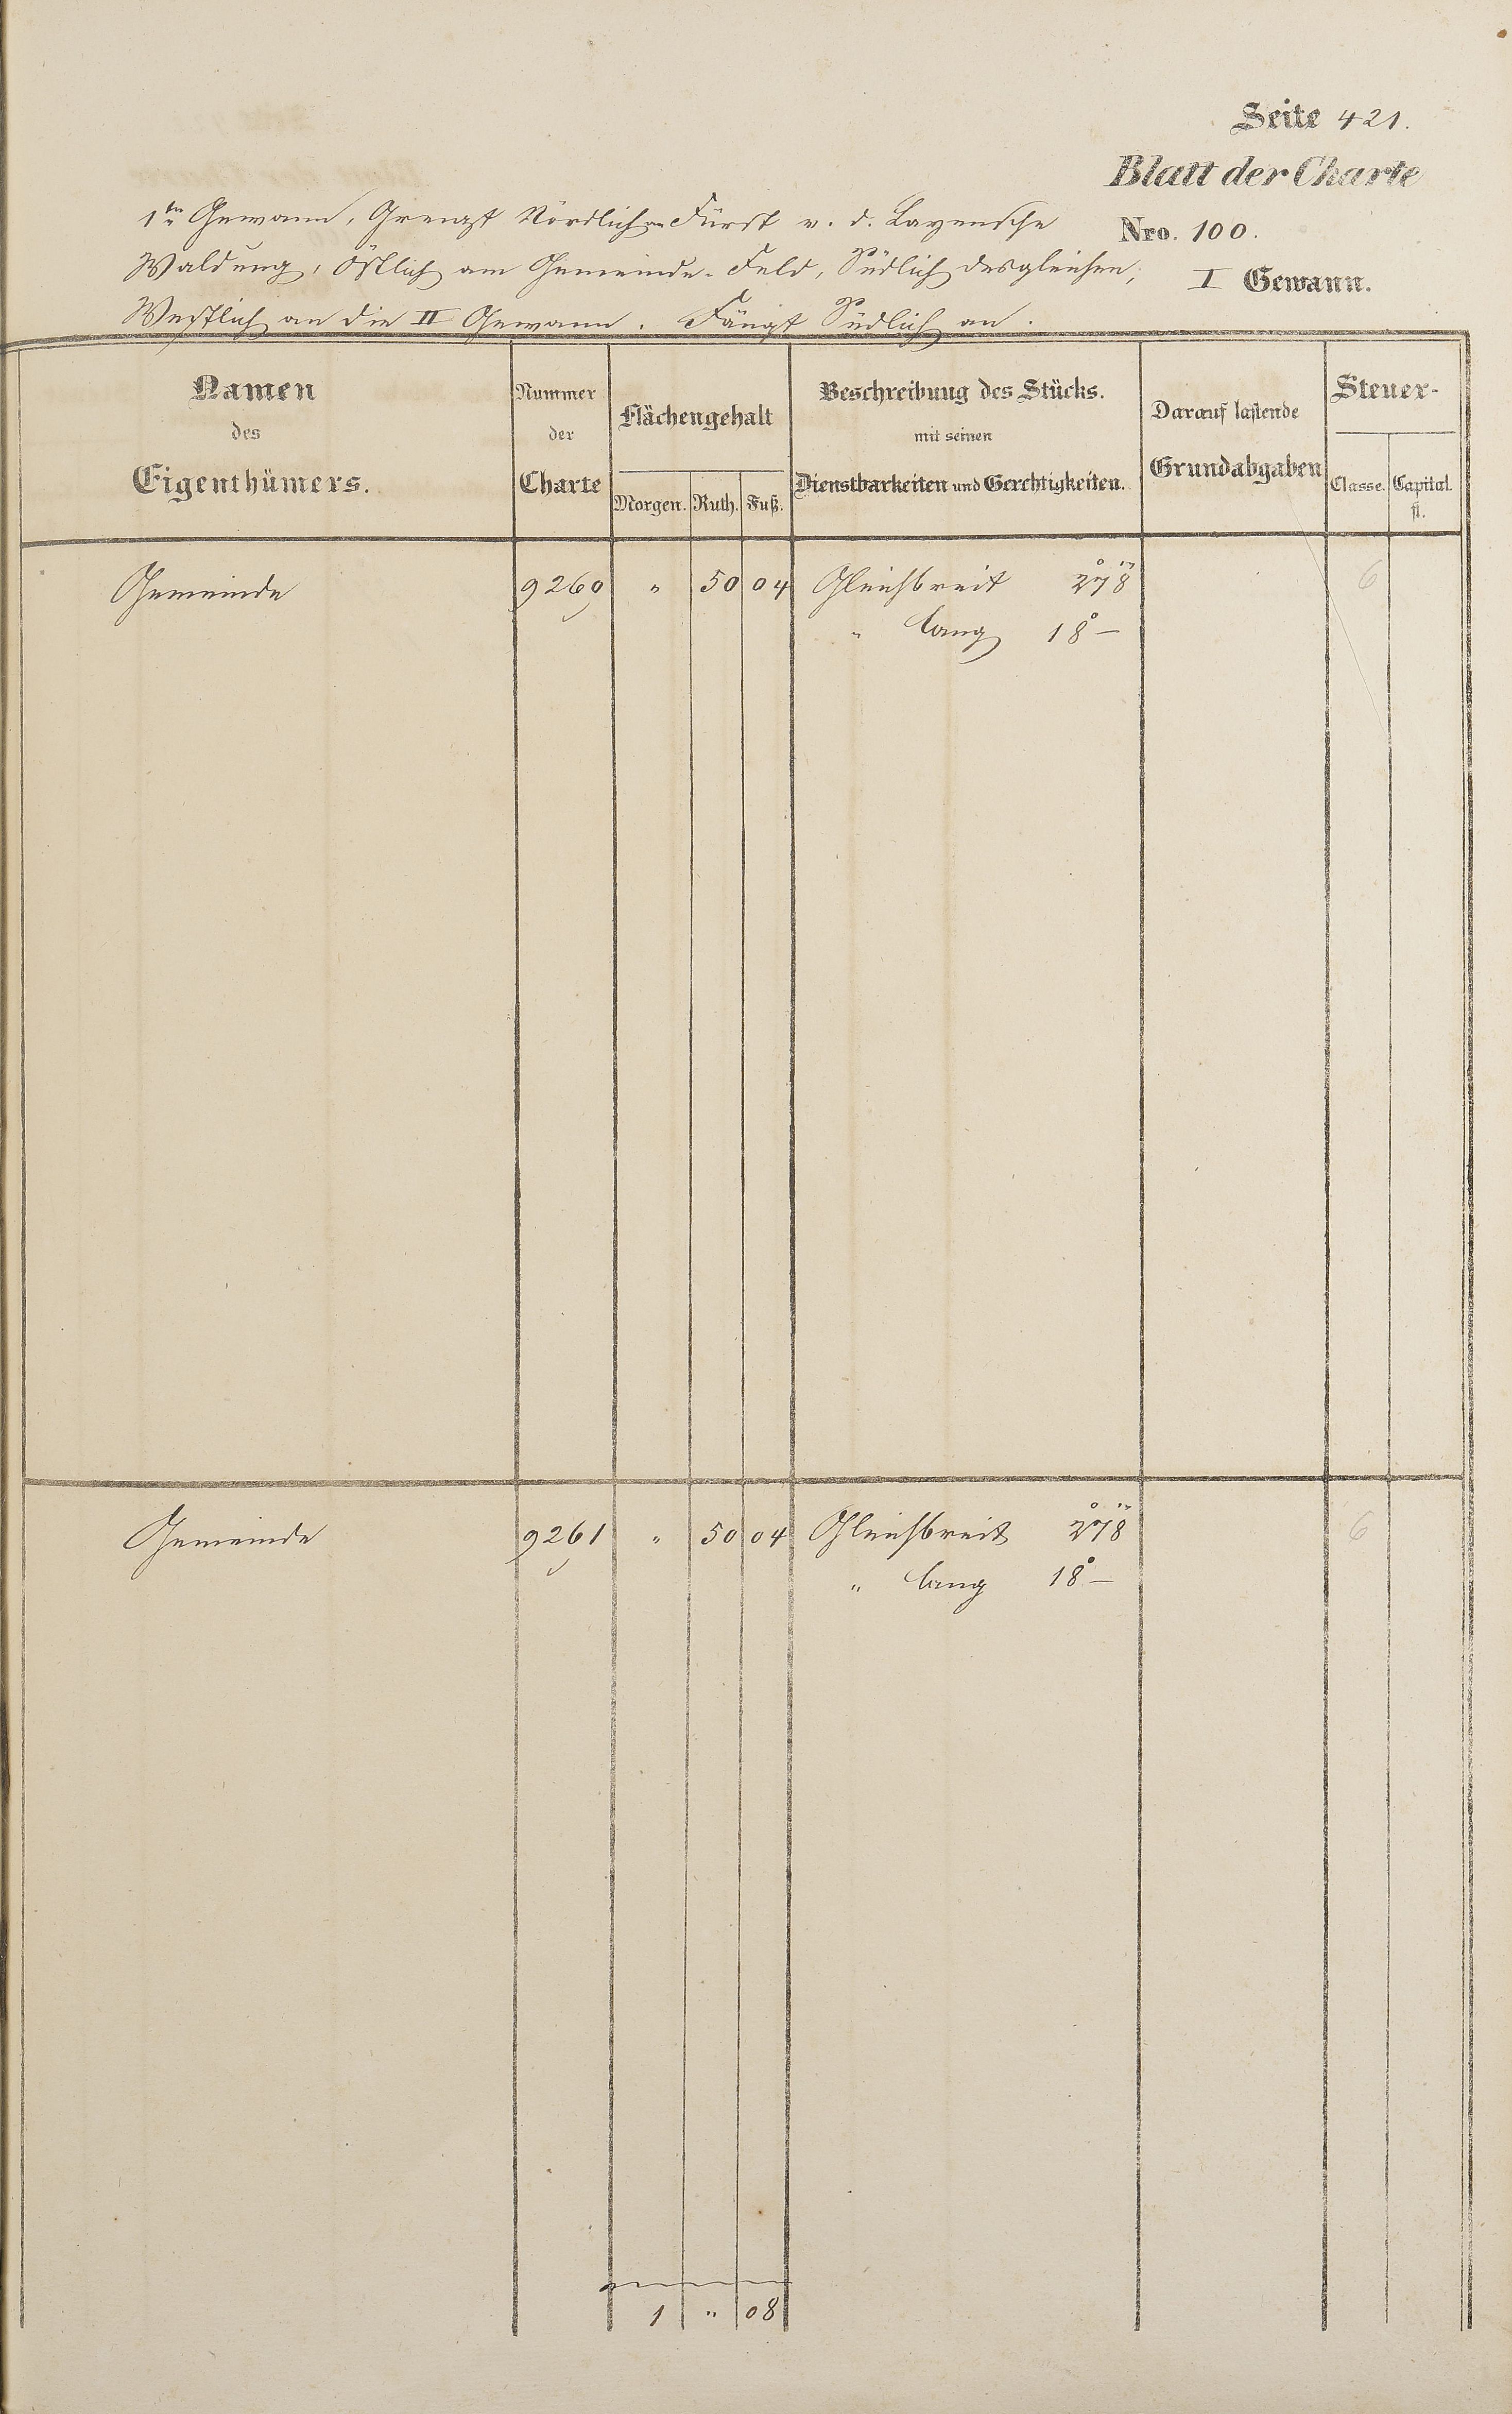 Seite 421.
Blatt der Charte
Nro. 100.
I Gewann.
1te Gewann, Grenzt Nördlich an Fürst v. d. Layensche
Waldung, Östlich am Gemeinde-Feld, Südlich desgleichen,
Westlich an die II Gewann. Fängt Südlich an.
Namen des Eigenthümers.
Nummer der Charte
Flächengehalt
Morgen. Ruth. Fuß.
Beschreibung des Stücks.
mit seinen
Dienstbarkeiten und Gerechtigkeiten.
Darauf lastende
Grundabgaben
Steuer-
Classe. Capital.
fl.
Gemeinde 9260 " 50 04 Gleichbreit 2°78" 6
" lang 18° –
Gemeinde 9261 " 50 04 Gleichbreit 2°78" 6
" lang 18° –
1 " 08